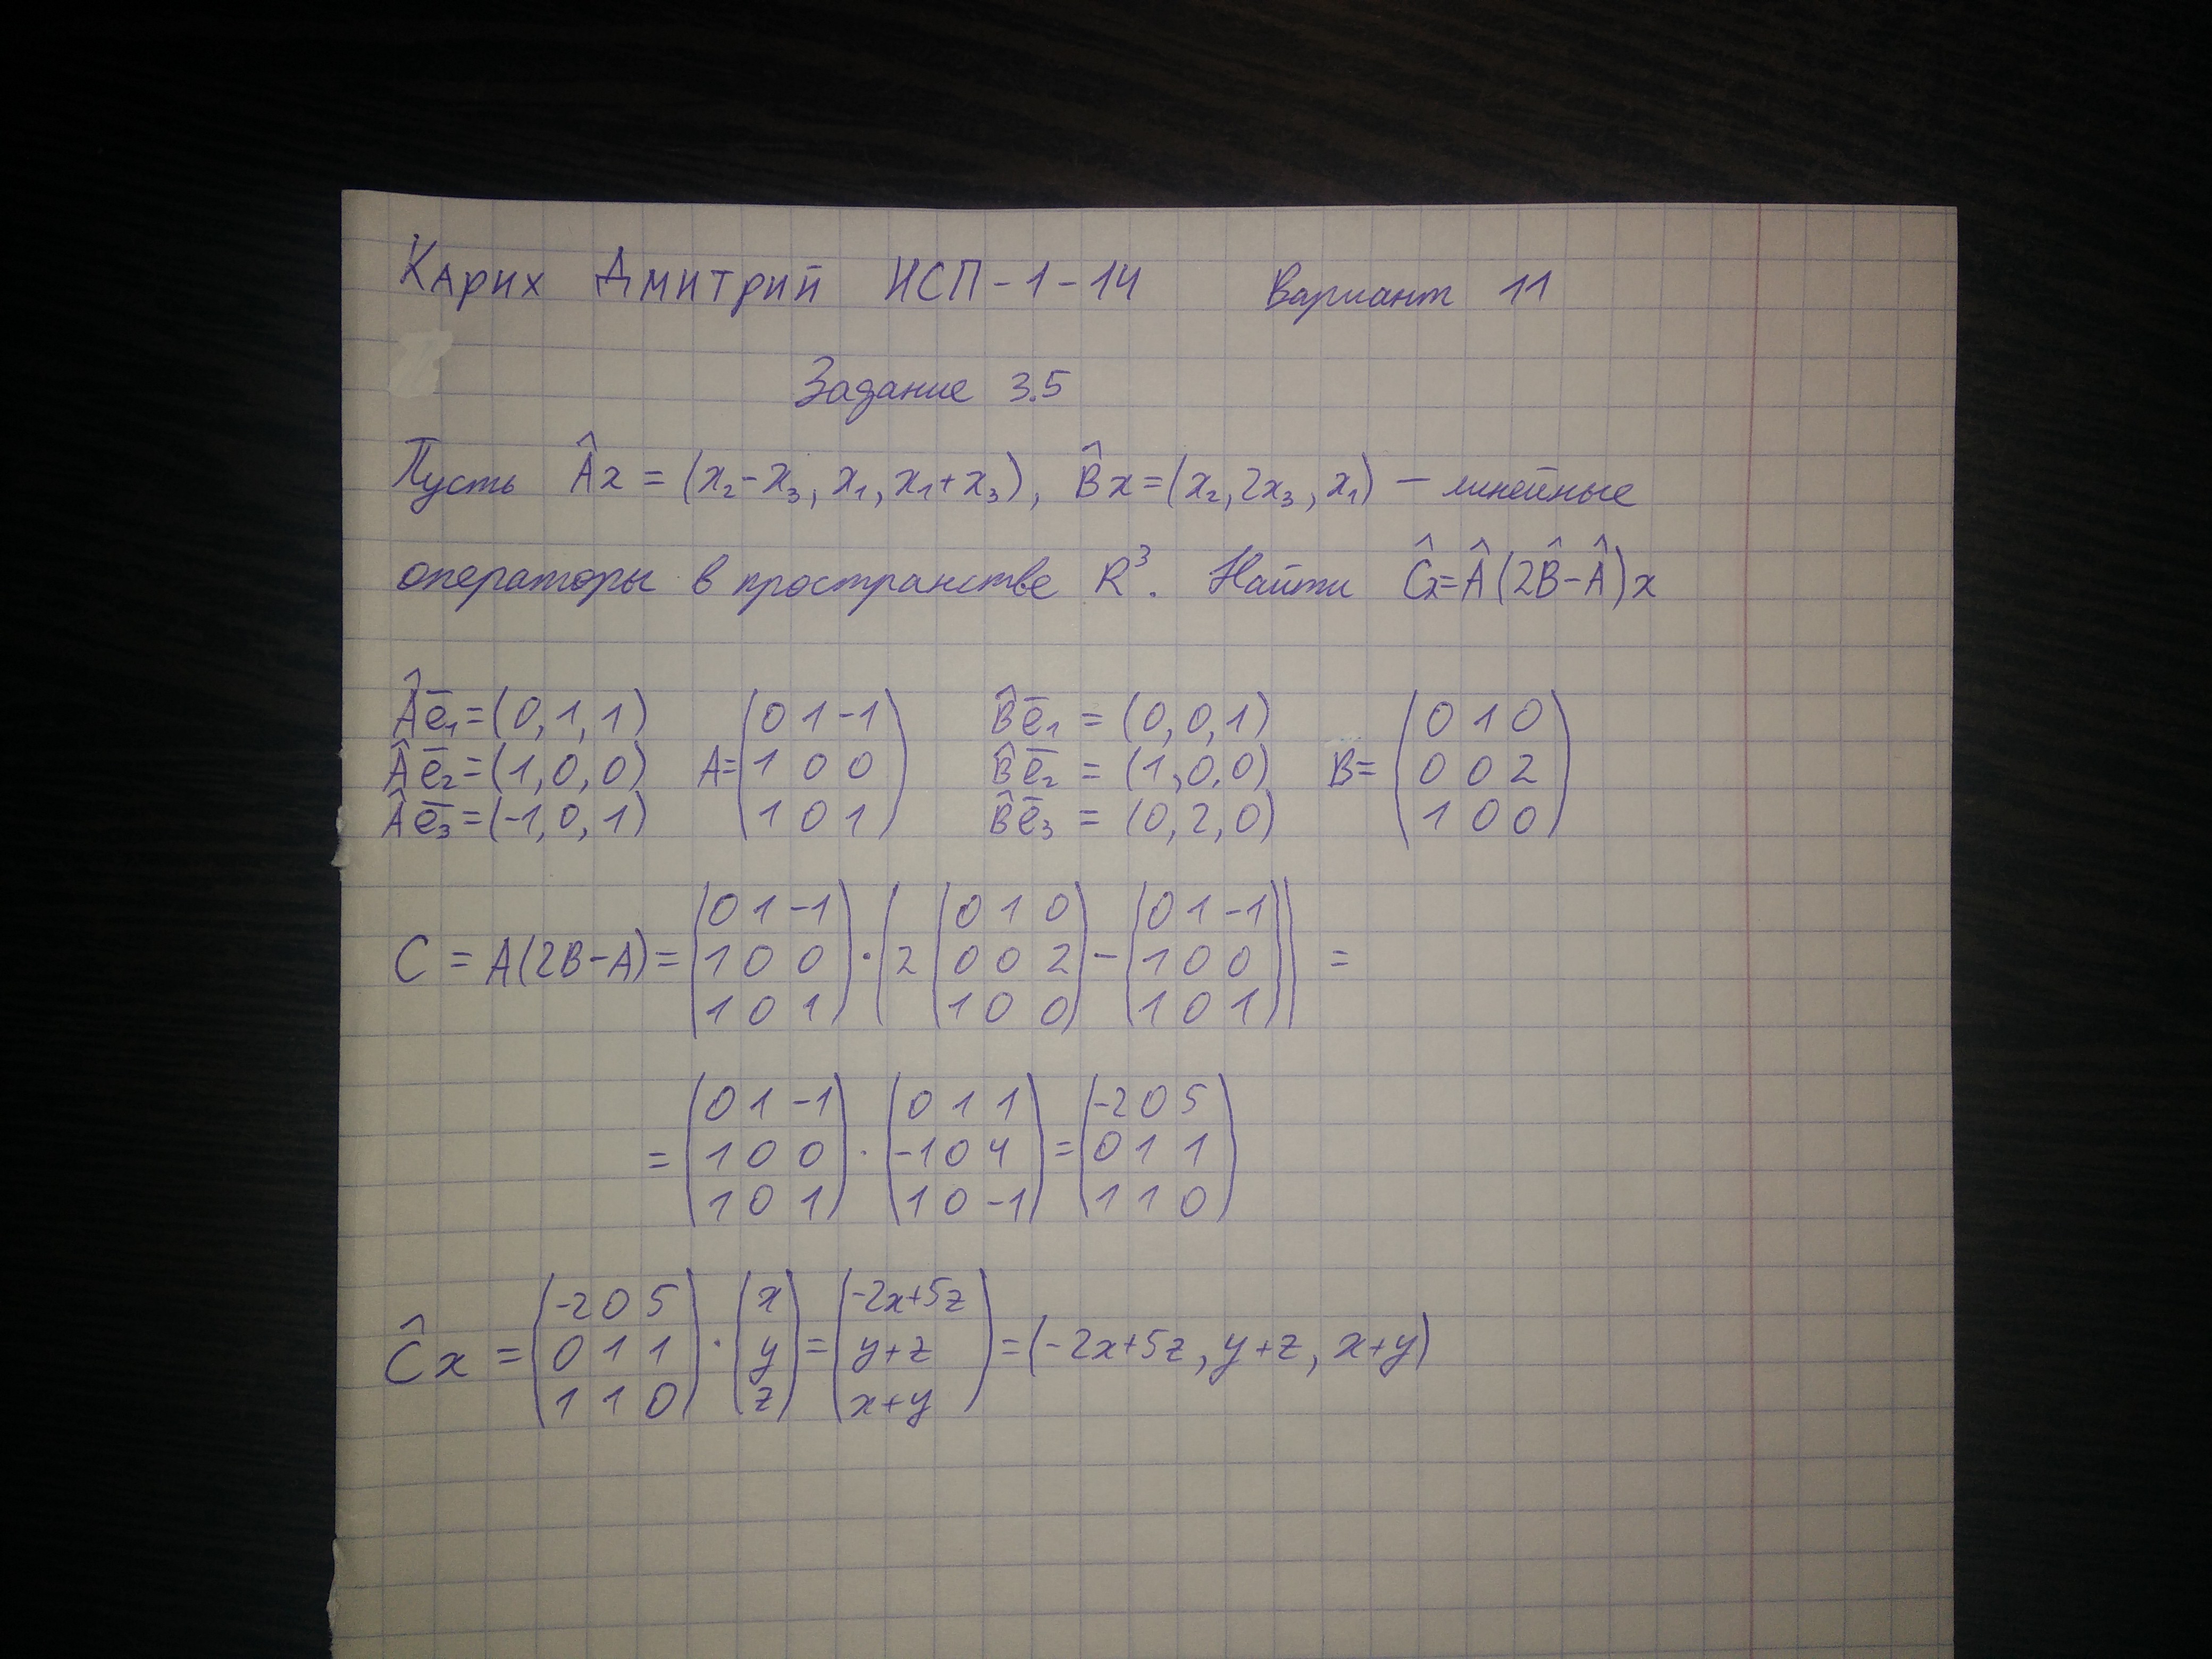 Карих Дмитрий ИСП-1-14 Вариант 11
Задание 3.5
Пусть Âx = (x₂-x₃, x₁, x₁+x₃), B̂x=(x₂, 2x₃, x₁) — линейные
операторы в пространстве R³. Найти Ĉx=Â(2B̂-Â)x
Âē₁=(0,1,1) A=(0 1 -1; 1 0 0; 1 0 1) B̂ē₁ = (0,0,1) B=(0 1 0; 0 0 2; 1 0 0)
Âē₂=(1,0,0) B̂ē₂ = (1,0,0)
Âē₃=(-1,0,1) B̂ē₃ = (0,2,0)
C = A(2B-A)= (0 1 -1; 1 0 0; 1 0 1) · (2 (0 1 0; 0 0 2; 1 0 0) - (0 1 -1; 1 0 0; 1 0 1)) =
= (0 1 -1; 1 0 0; 1 0 1) · (0 1 1; -1 0 4; 1 0 -1) = (-2 0 5; 0 1 1; 1 1 0)
Ĉx = (-2 0 5; 0 1 1; 1 1 0) · (x; y; z) = (-2x+5z; y+z; x+y) = (-2x+5z, y+z, x+y)